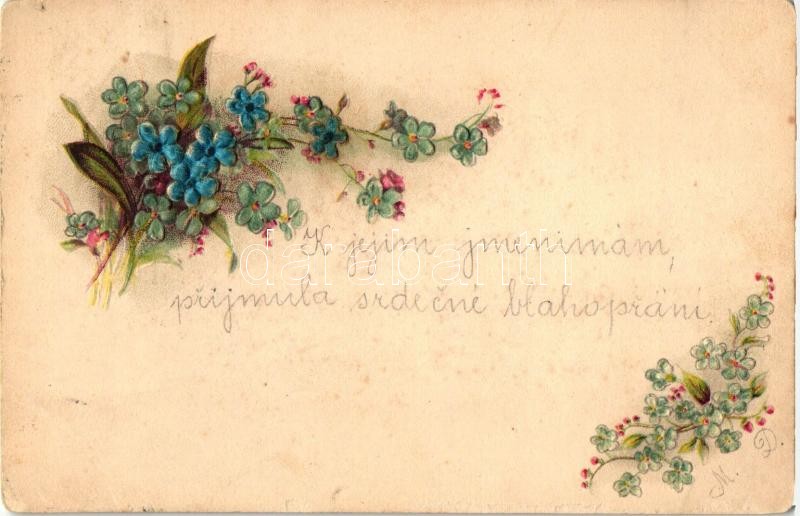 K jejím jmenimám,
přijmula srdečné blahopřání.
M. D.
darabanth